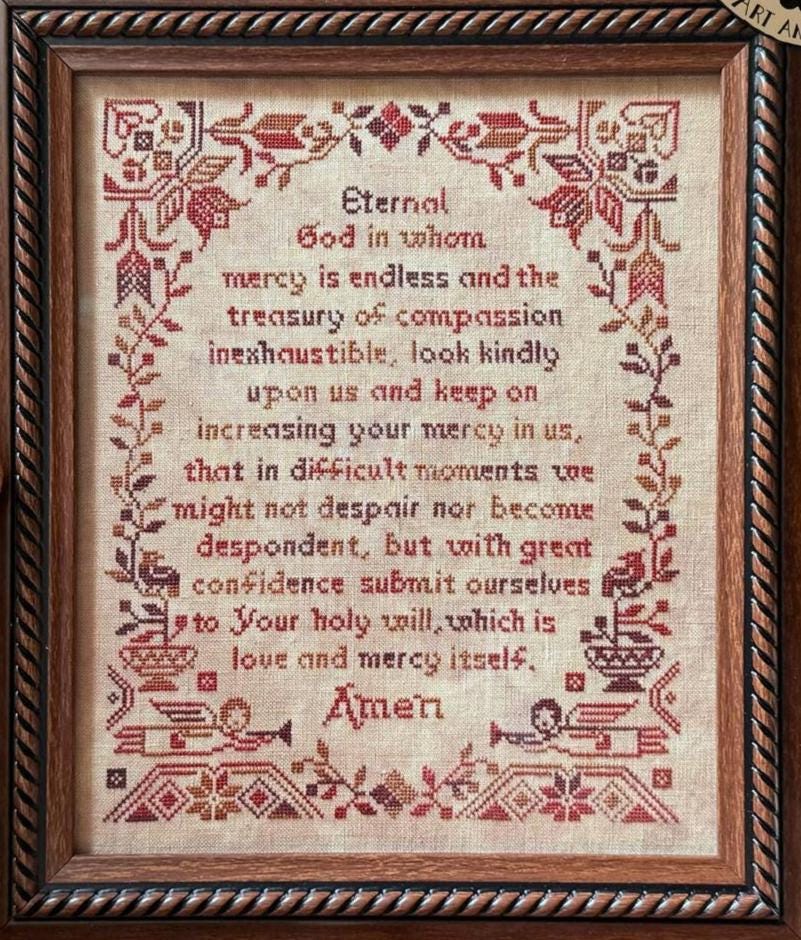 ART AN
Eternal
God in whom
mercy is endless and the
treasury of compassion
inexhaustible, look kindly
upon us and keep on
increasing your mercy in us,
that in difficult moments we
might not despair nor become
despondent, but with great
confidence submit ourselves
to Your holy will, which is
love and mercy itself.
Amen